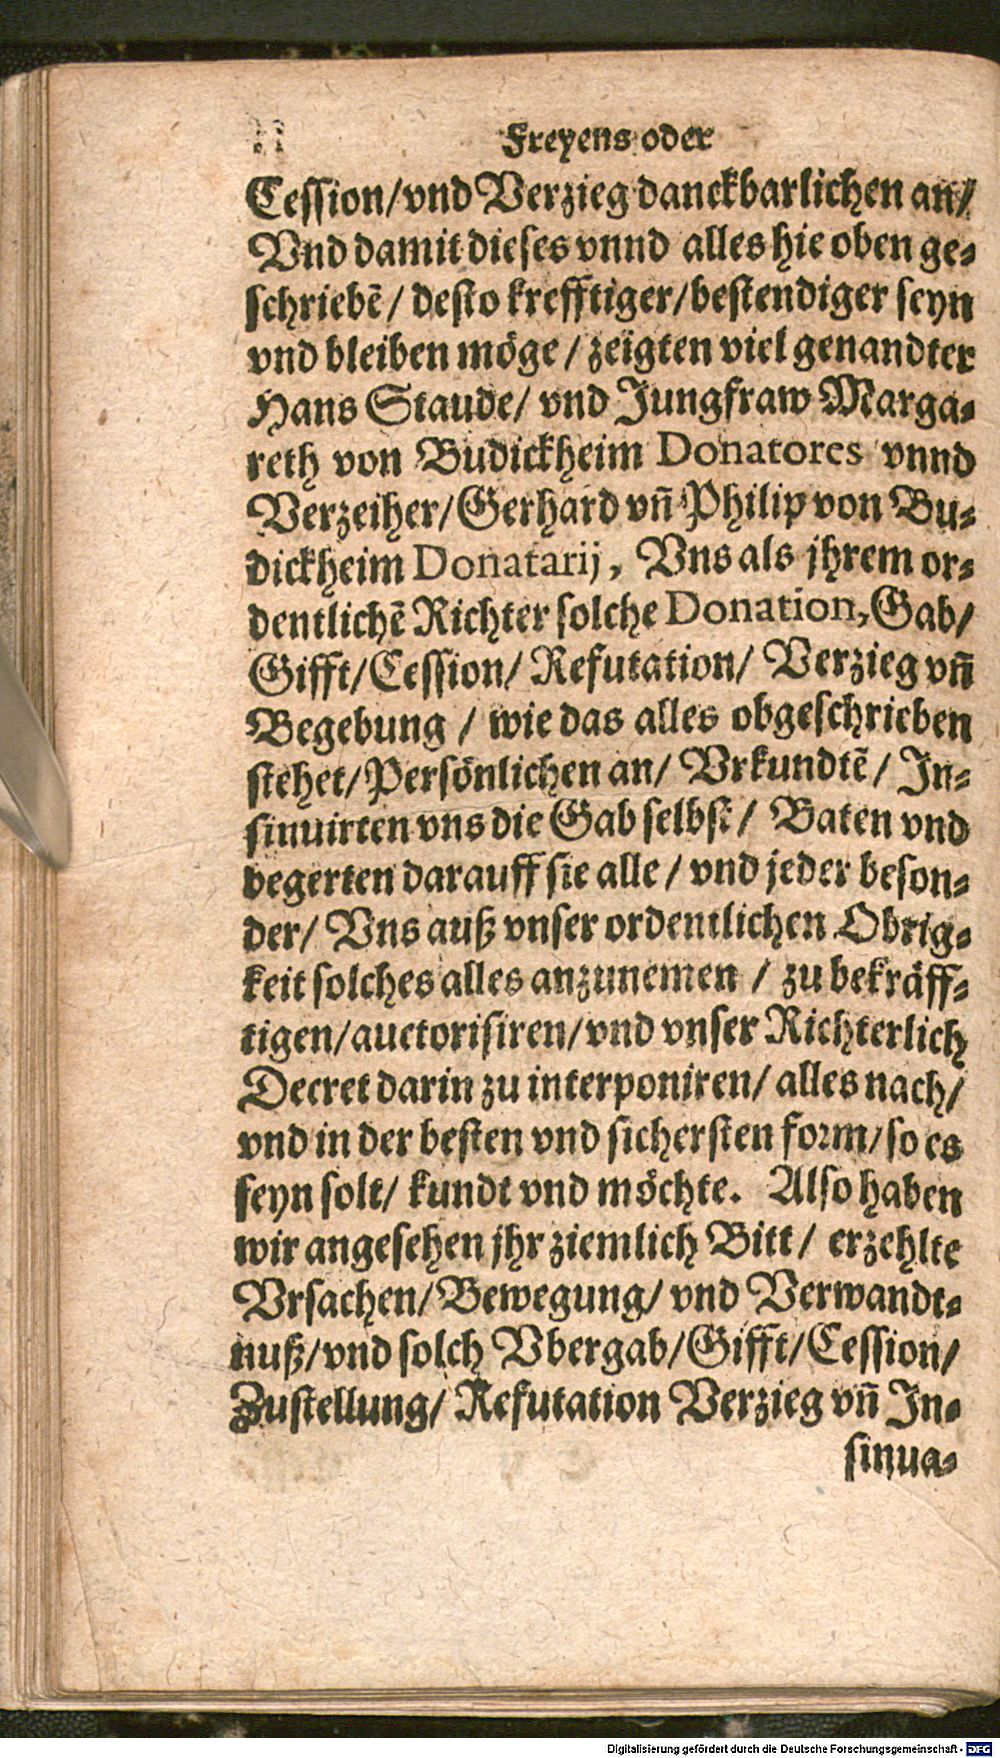 Freyens oder
Cession/vnd Verzieg danckbarlichen an/
Vnd damit dieses vnnd alles hie oben ge-
schriebẽ/ desto krefftiger/bestendiger seyn
vnd bleiben möge/zeigten viel genandter
Hans Staude/ vnd Jungfraw Marga-
reth von Budickheim Donatores vnnd
Verzeiher/Gerhard vñ Philip von Bu-
dickheim Donatarij, Vns als jhrem or-
dentlichẽ Richter solche Donation, Gab/
Gifft/Cession/ Refutation/ Verzieg vñ
Begebung / wie das alles obgeschrieben
stehet/Persönlichen an/ Vrkundtẽ/ In-
sinuirten vns die Gab selbst/ Baten vnd
begerten darauff sie alle/ vnd jeder beson-
der/ Vns auß vnser ordentlichen Obrig-
keit solches alles anzunemen / zu bekräff-
tigen/auctorisiren/vnd vnser Richterlich
Decret darin zu interponiren/ alles nach/
vnd in der besten vnd sichersten form/so es
seyn solt/ kundt vnd möchte. Also haben
wir angesehen jhr ziemlich Bitt/ erzehlte
Vrsachen/Bewegung/ vnd Verwandt-
nuß/vnd solch Vbergab/Gifft/Cession/
Zustellung/ Refutation Verzieg vñ In-
sinua-
Digitalisierung gefördert durch die Deutsche Forschungsgemeinschaft - DFG